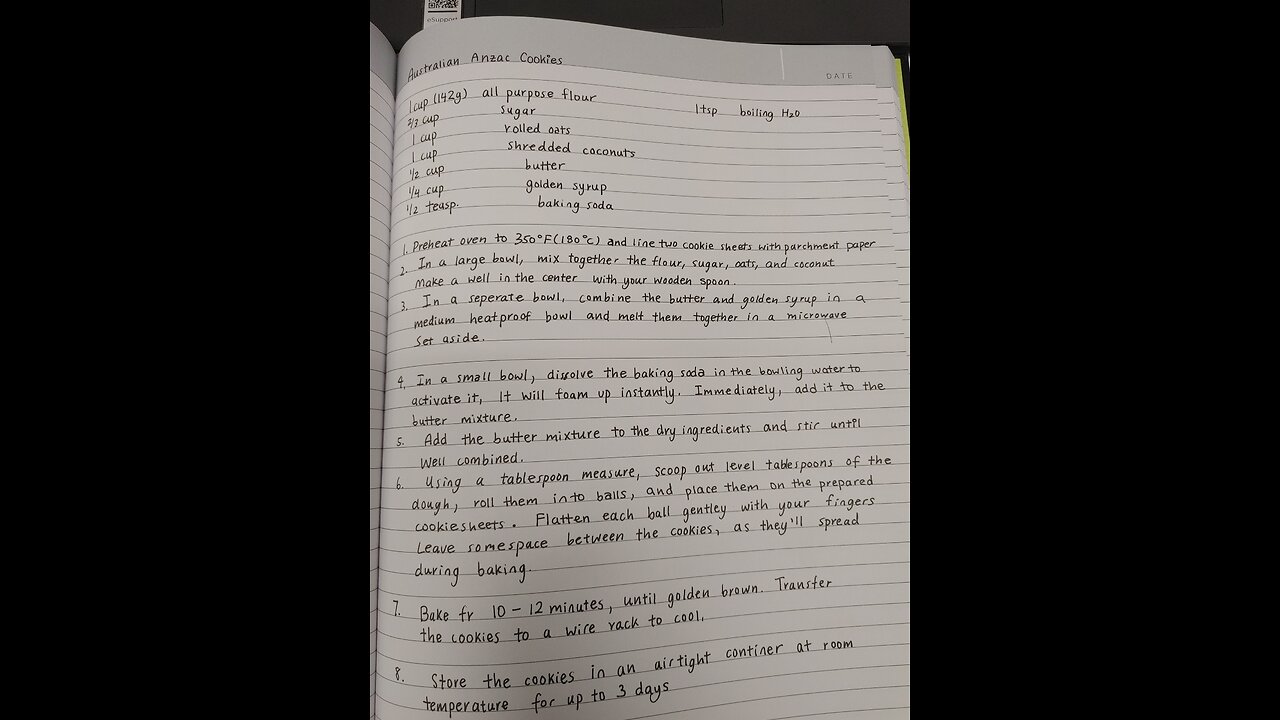 eSupport
Australian Anzac Cookies
DATE
1 cup (142g) all purpose flour
2/3 cup sugar
1 cup rolled oats
1 cup shredded coconuts
1/2 cup butter
1/4 cup golden syrup
1/2 teasp. baking soda
1tsp boiling H2O
1. Preheat oven to 350°F(180°C) and line two cookie sheets with parchment paper
2. In a large bowl, mix together the flour, sugar, oats, and coconut
make a well in the center with your wooden spoon.
3. In a seperate bowl, combine the butter and golden syrup in a
medium heatproof bowl and melt them together in a microwave
Set aside.
4. In a small bowl, dissolve the baking soda in the bowling water to
activate it, It will foam up instantly. Immediately, add it to the
butter mixture.
5. Add the butter mixture to the dry ingredients and stir until
well combined.
6. Using a tablespoon measure, scoop out level tablespoons of the
dough, roll them into balls, and place them on the prepared
cookiesheets. Flatten each ball gentley with your fingers
Leave somespace between the cookies, as they'll spread
during baking.
7. Bake fr 10 - 12 minutes, until golden brown. Transfer
the cookies to a wire rack to cool.
8. Store the cookies in an airtight continer at room
temperature for up to 3 days